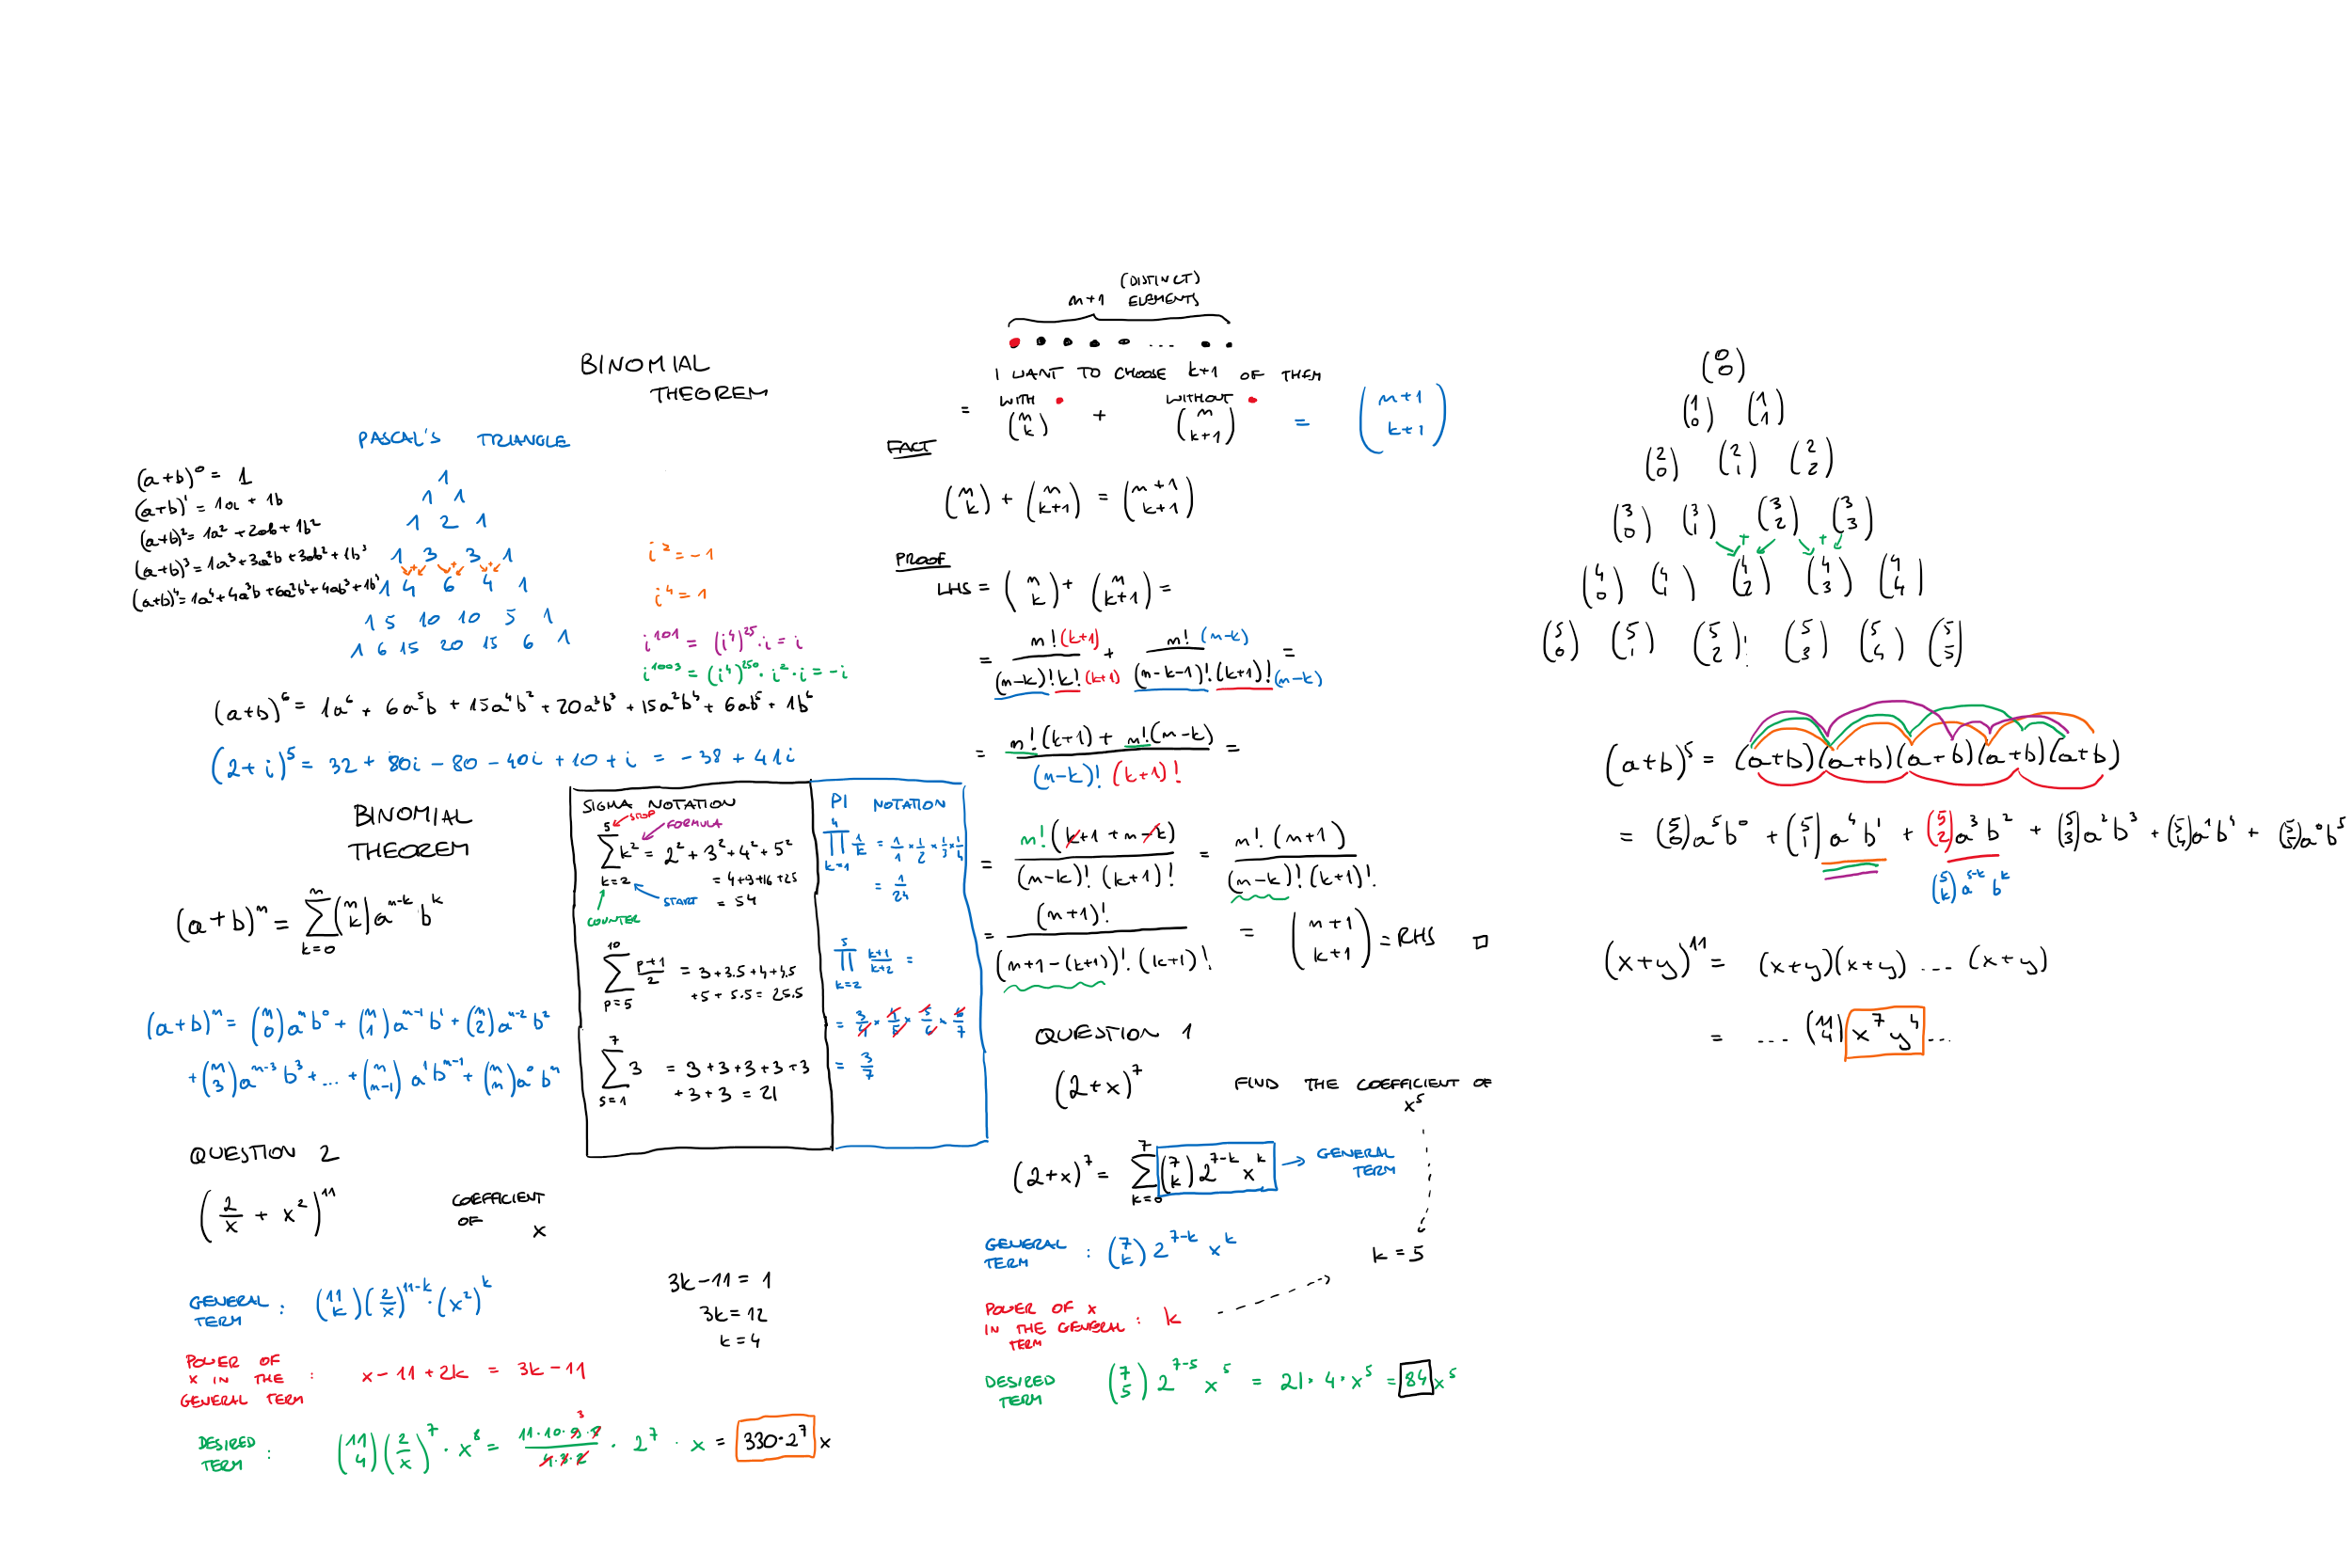 BINOMIAL
THEOREM
PASCAL'S TRIANGLE
(a+b)⁰ = 1
(a+b)¹ = 1a + 1b
(a+b)² = 1a² + 2ab + 1b²
(a+b)³ = 1a³ + 3a²b + 3ab² + 1b³
(a+b)⁴ = 1a⁴ + 4a³b + 6a²b² + 4ab³ + 1b⁴
1
1 1
1 2 1
1 3 3 1
+ + +
1 4 6 4 1
1 5 10 10 5 1
1 6 15 20 15 6 1
i² = -1
i⁴ = 1
i¹⁰¹ = (i⁴)²⁵ · i = i
i¹⁰⁰³ = (i⁴)²⁵⁰ · i² · i = -i
(a+b)⁶ = 1a⁶ + 6a⁵b + 15a⁴b² + 20a³b³ + 15a²b⁴ + 6ab⁵ + 1b⁶
(2+i)⁵ = 32 + 80i - 80 - 40i + 10 + i = -38 + 41i
BINOMIAL
THEOREM
(a+b)^n = ∑_{k=0}^{n} (n k) a^{n-k} b^k
(a+b)^n = (n 0) a^n b⁰ + (n 1) a^{n-1} b¹ + (n 2) a^{n-2} b²
+ (n 3) a^{n-3} b³ + ... + (n n-1) a¹ b^{n-1} + (n n) a⁰ b^n
SIGMA NOTATION
STOP
FORMULA
∑_{k=2}^{5} k² = 2² + 3² + 4² + 5²
= 4+9+16+25
START
= 54
COUNTER
∑_{p=5}^{10} (p+1)/2 = 3+3.5+4+4.5
+5+5.5 = 25.5
∑_{s=1}^{7} 3 = 3+3+3+3+3
+3+3 = 21
PI NOTATION
∏_{k=1}^{4} 1/k = 1/1 × 1/2 × 1/3 × 1/4
= 1/24
∏_{k=2}^{5} (k+1)/(k+2) =
= 3/4 × 4/5 × 5/6 × 6/7
= 3/7
QUESTION 2
(2/x + x²)¹¹
COEFFICIENT
OF x
GENERAL
TERM : (11 k) (2/x)^{11-k} · (x²)^k
3k-11 = 1
3k = 12
k = 4
POWER OF
x IN THE :
GENERAL TERM
x-11+2k = 3k-11
DESIRED
TERM : (11 4) (2/x)⁷ · x⁸ = (11·10·9·8)/(4·3·2) · 2⁷ · x = 330·2⁷ x
3
(DISTINCT)
n+1 ELEMENTS
...
I WANT TO CHOOSE k+1 OF THEM
WITH WITHOUT
= (n k) + (n k+1) = (n+1 k+1)
FACT
(n k) + (n k+1) = (n+1 k+1)
PROOF
LHS = (n k) + (n k+1) =
= n!(k+1) / (n-k)! k! (k+1) + n!(n-k) / (n-k-1)! (k+1)! (n-k) =
= n!(k+1) + n!(n-k) / (n-k)! (k+1)! =
= n!(k+1+n-k) / (n-k)! (k+1)! = n!(n+1) / (n-k)! (k+1)!
= (n+1)! / (n+1-(k+1))! (k+1)! = (n+1 k+1) = RHS □
QUESTION 1
(2+x)⁷
FIND THE COEFFICIENT OF
x⁵
(2+x)⁷ = ∑_{k=0}^{7} (7 k) 2^{7-k} x^k
GENERAL
TERM
GENERAL
TERM : (7 k) 2^{7-k} x^k
k = 5
POWER OF x
IN THE GENERAL : k
TERM
DESIRED
TERM
(7 5) 2^{7-5} x⁵ = 21 · 4 · x⁵ = 84 x⁵
(0 0)
(1 0) (1 1)
(2 0) (2 1) (2 2)
(3 0) (3 1) (3 2) (3 3)
+ +
(4 0) (4 1) (4 2) (4 3) (4 4)
(5 0) (5 1) (5 2) (5 3) (5 4) (5 5)
(a+b)⁵ = (a+b)(a+b)(a+b)(a+b)(a+b)
= (5 0) a⁵b⁰ + (5 1) a⁴b¹ + (5 2) a³b² + (5 3) a²b³ + (5 4) a¹b⁴ + (5 5) a⁰b⁵
(5 k) a^{5-k} b^k
(x+y)¹¹ = (x+y)(x+y) .... (x+y)
= ... (11 4) x⁷y⁴ ...